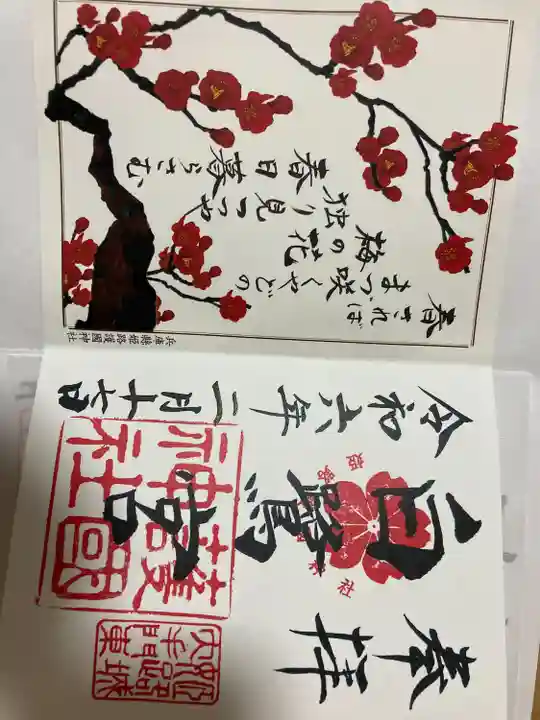 奉拝
白鷺宮
令和六年二月十七日
姫路護國神社
護國
神社
姫路城
大手門東
兵庫縣姫路護國神社
春されば
まづ咲くやどの
梅の花
独り見つつや
春日暮らさむ